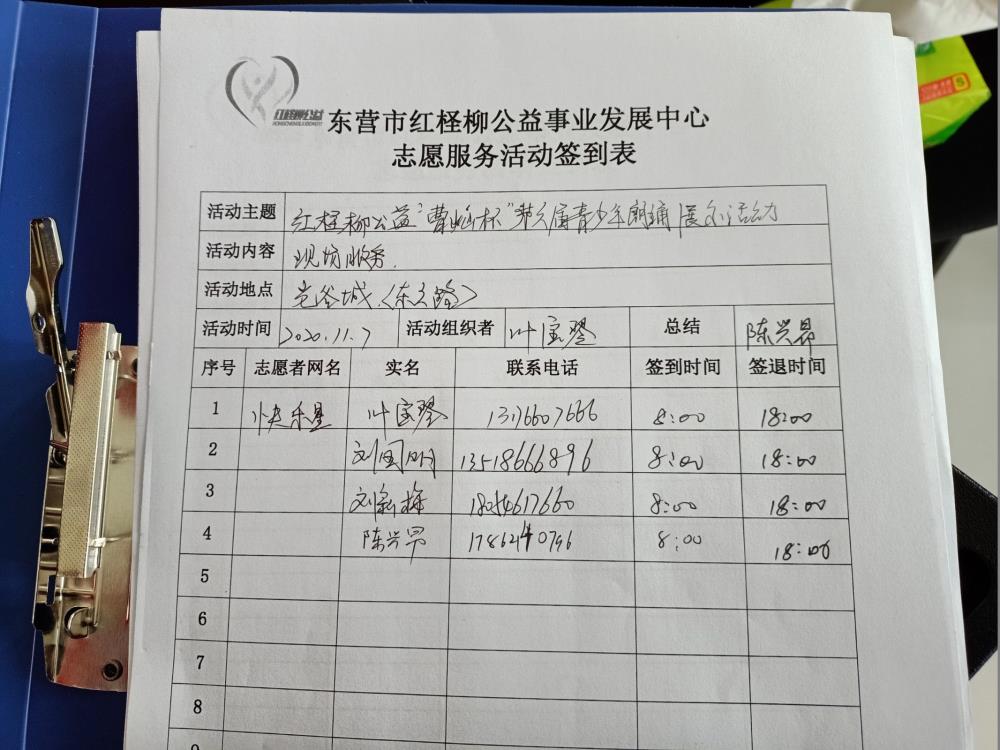 红柽柳公益
东营市红柽柳公益事业发展中心
志愿服务活动签到表
活动主题 红柽柳公益"曹灿杯"第六届青少年朗诵展示活动
活动内容 现场服务.
活动地点
活动时间 2020.11.7 活动组织者 叶宝琴 总结 陈兴昂
序号 志愿者网名 实名 联系电话 签到时间 签退时间
1 快乐星 叶宝琴 13176607666 8:00 18:00
2 刘国明 13518666896 8:00 18:00
3 刘新梅 18054617660 8:00 18:00
4 陈兴昂 8:00 18:00
5
6
7
8